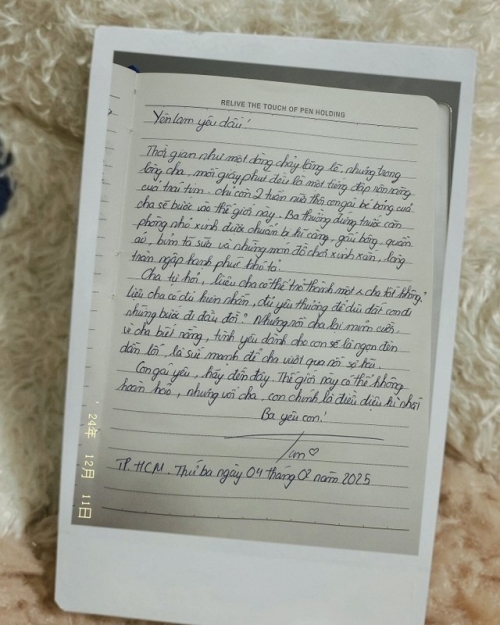 RELIVE THE TOUCH OF PEN HOLDING
Yên Lam yêu dấu!
Thời gian như một dòng chảy lặng lẽ, nhưng trong
lòng cha, mỗi giây phút đều là một tiếng đập rộn ràng
của trái tim. chỉ còn 2 tuần nữa thôi con gái bé bỏng của
cha sẽ bước vào thế giới này. Ba thường đứng trước căn
phòng nhỏ xinh được chuẩn bị kĩ càng, gấu bông, quần
áo, bỉm tã sữa và những món đồ chơi xinh xắn, lòng
tràn ngập hạnh phúc khó tả.
Cha tự hỏi, liệu cha có thể trở thành một cha tốt không?
Liệu cha có đủ kiên nhẫn, đủ yêu thương để dìu dắt con đi
những bước đi đầu đời? Nhưng rồi cha lại mỉm cười,
vì cha biết rằng, tình yêu dành cho con sẽ là ngọn đèn
dẫn lối, là sức mạnh để cha vượt qua nỗi sợ
Con gái yêu, hãy đến đây. Thế giới này có thể không
hoàn hảo, nhưng với cha, con chính là điều diệu kì nhất
Ba yêu con!
♡
TP. HCM. Thứ ba ngày 04 tháng 02 năm 2025
'24年 12月 11日